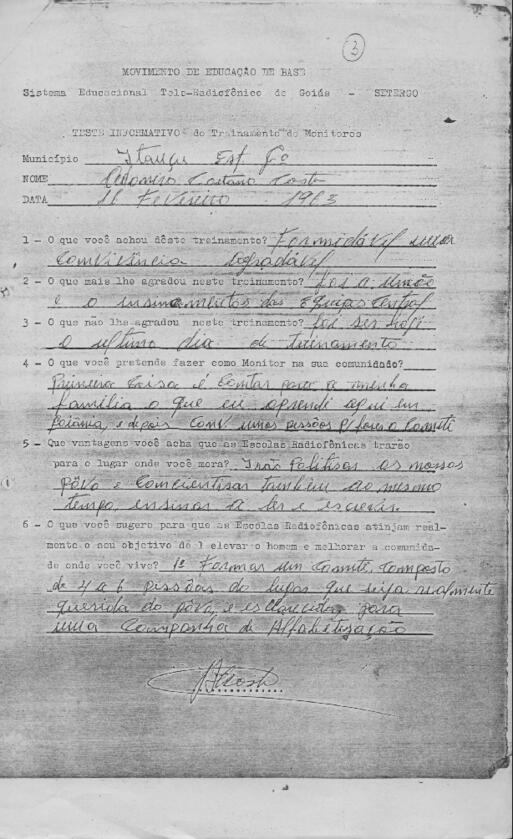 3
MOVIMENTO DE EDUCAÇÃO DE BASE
Sistema Educacional Tele-Radiofônico de Goiás - SETERGO
TESTE INFORMATIVO do Treinamento de Monitores
Município Itauçu Est. Go
NOME Caetano Costa
DATA 16 Fevereiro 1963
1 - O que você achou dêste treinamento? Formidável uma
Convivência agradável
2 - O que mais lhe agradou neste treinamento? foi a união
e o ensinamentos das Equipes Central
3 - O que não lhe agradou neste treinamento? foi ser hoje
o ultimo dia de treinamento
4 - O que você pretende fazer como Monitor na sua comunidade?
Primeira Coisa é Contar para a minha
familia o que eu aprendi aqui em
Goiânia, e depois Conv. umas pessôas p/ fazer o Comite
5 - Que vantagens você acha que as Escolas Radiofônicas trarão
para o lugar onde você mora? Irão Politisar os nossos
pôvo e Concientisar também ao mesmo
tempo, ensinar a ler e escrever
6 - O que você sugere para que as Escolas Radiofônicas atinjam real-
mente o seu objetivo de l elevar o homem e melhorar a comunida-
de onde você vive? 1º Formar um Comite, composto
de 4 a 6 pessôas do lugar que seja realmente
querida do pôvo, e esclarecidas, para
uma Companha de Alfabetização